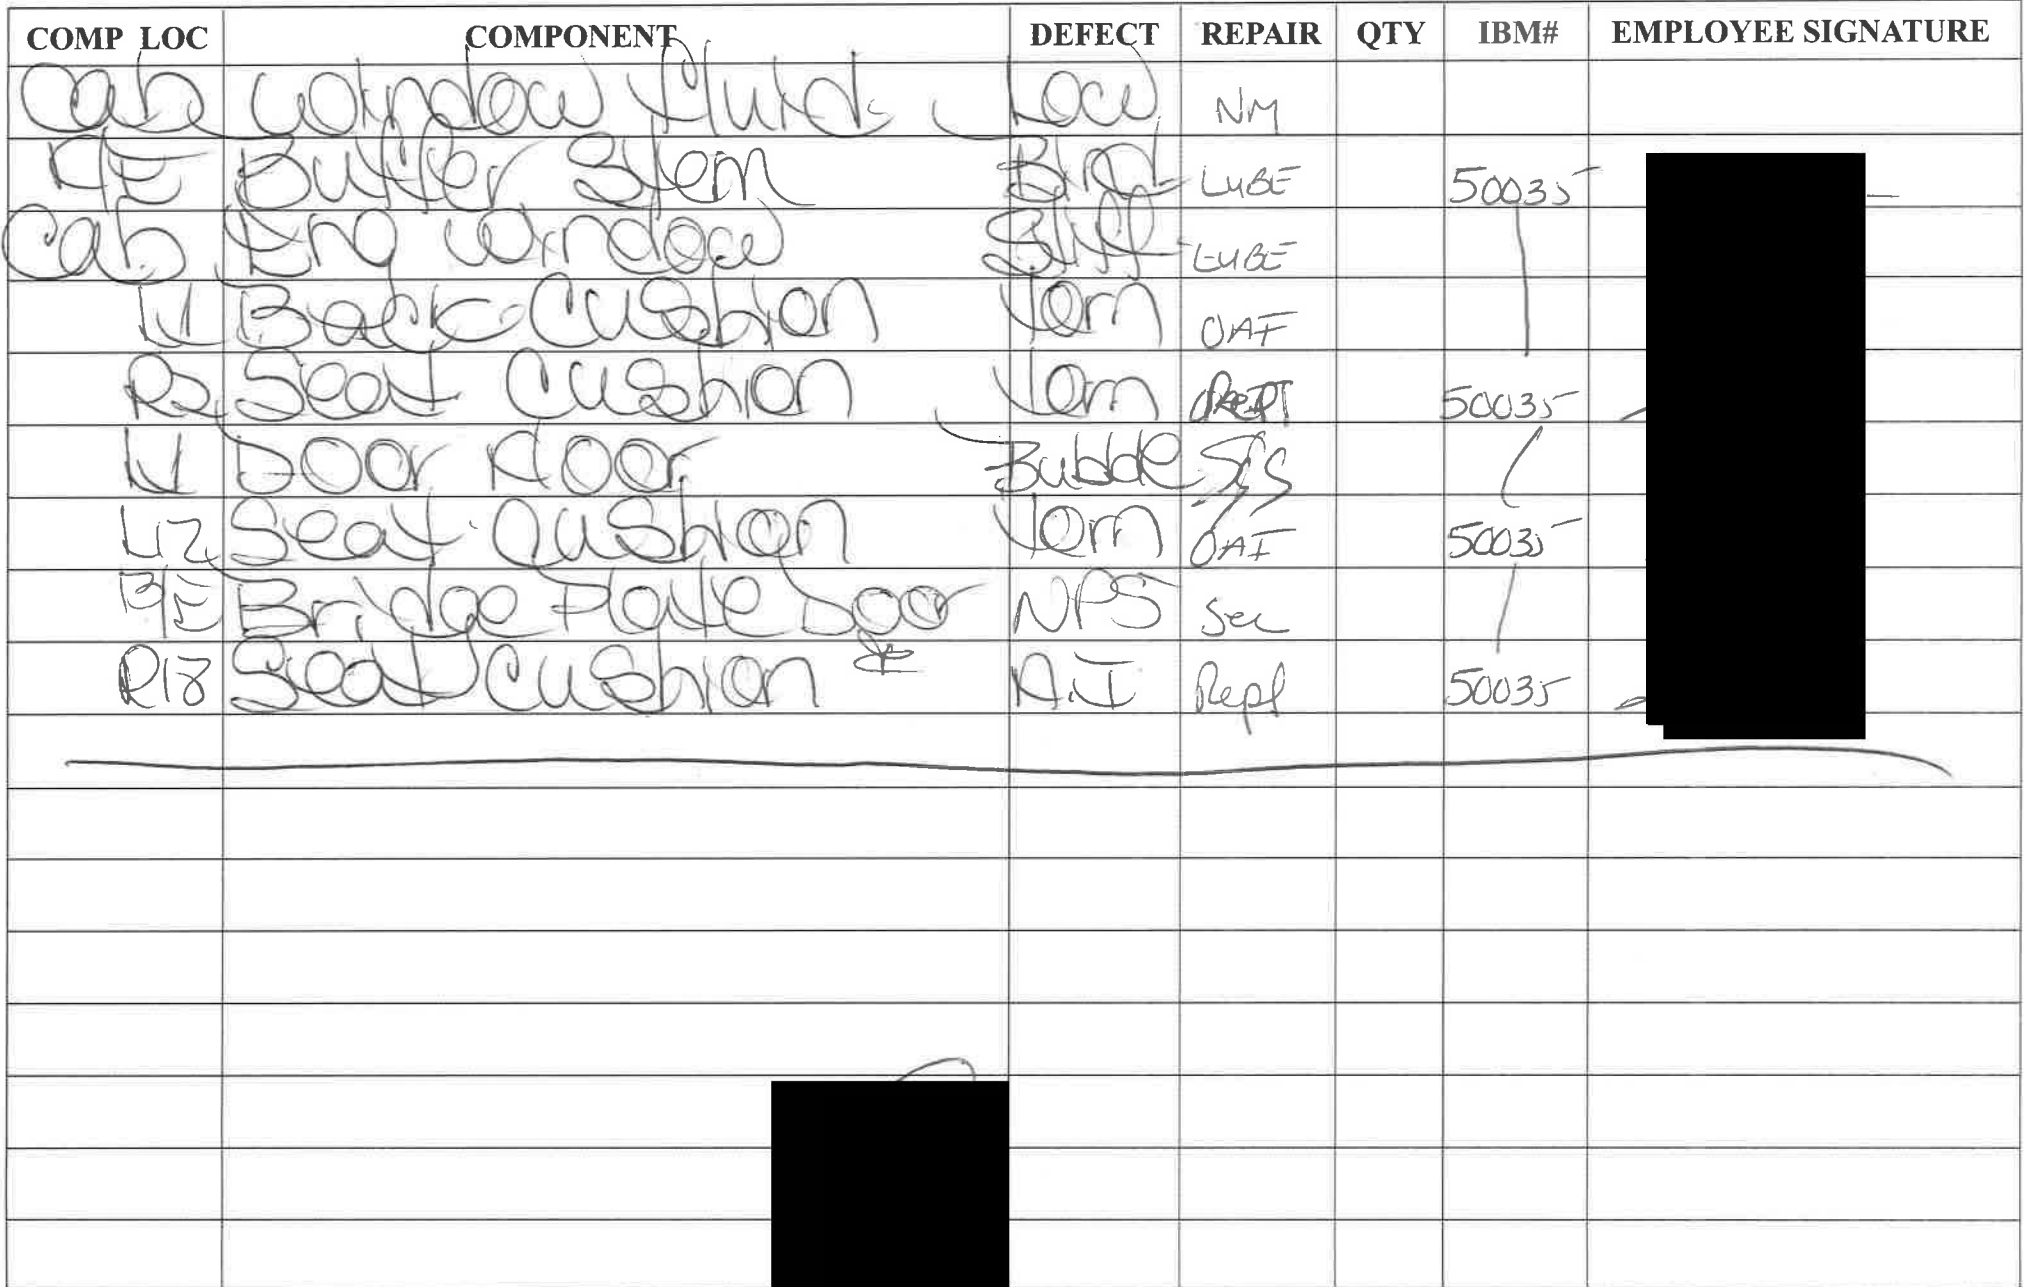 COMP LOC COMPONENT DEFECT REPAIR QTY IBM# EMPLOYEE SIGNATURE
Cab Window Fluid Low NM
F/E Buffer Stem Bind LUBE 50035
Cab Eng Window Stiff LUBE
Back Cushion Torn OAI
R2 Seat Cushion Torn 50035
Door Floor Bubble
L12 Seat Cushion Torn OAI 50035
B/E Bridge Plate Door NPS Sec
R18 Seat Cushion A.I Repl 50035